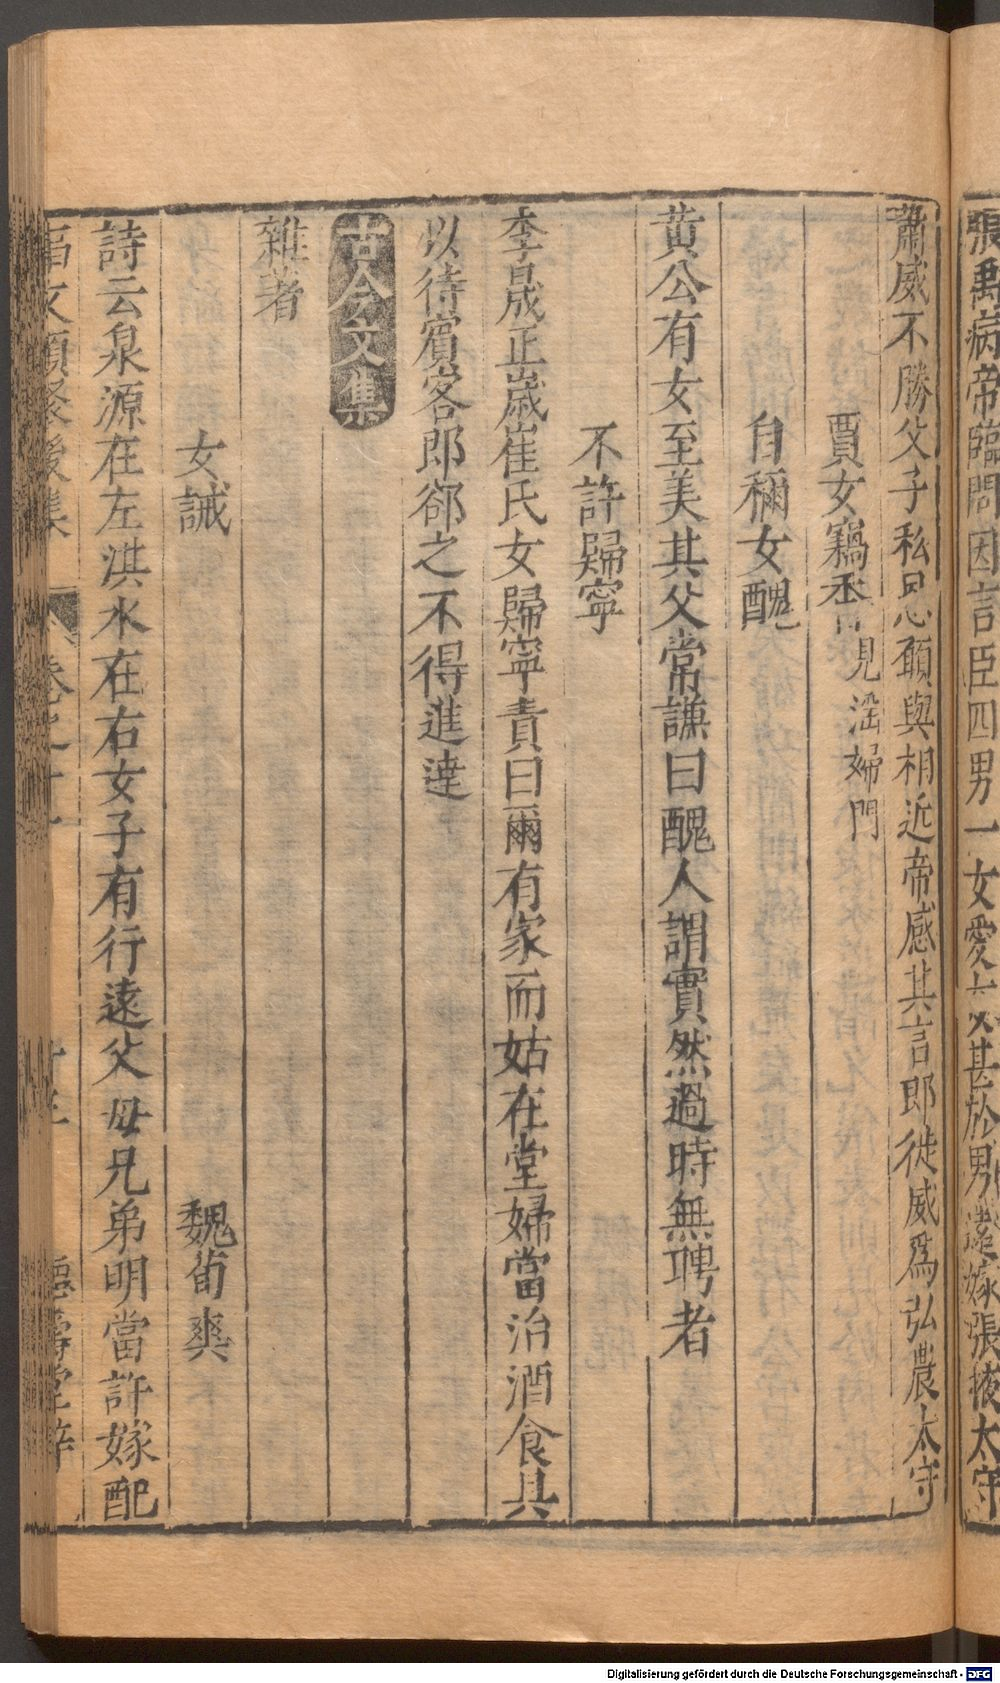 張禹病帝臨問因言臣四男一女愛女甚於男遠嫁張掖太守
蕭咸不勝父子私恩願與相近帝感其言即徙咸為弘農太守
賈女竊香 見淫婦門
自稱女醜
黃公有女至美其父常謙曰醜人謂實然過時無聘者
不許歸寧
李晟正歲崔氏女歸寧責曰爾有家而姑在堂婦當治酒食具
以待賓客即郤之不得進達
古今文集
雜著
女誡 魏荀爽
詩云泉源在左淇水在右女子有行遠父母兄弟明當許嫁配
事文類聚後集 卷之十一 十三 德壽堂梓
Digitalisierung gefördert durch die Deutsche Forschungsgemeinschaft - DFG